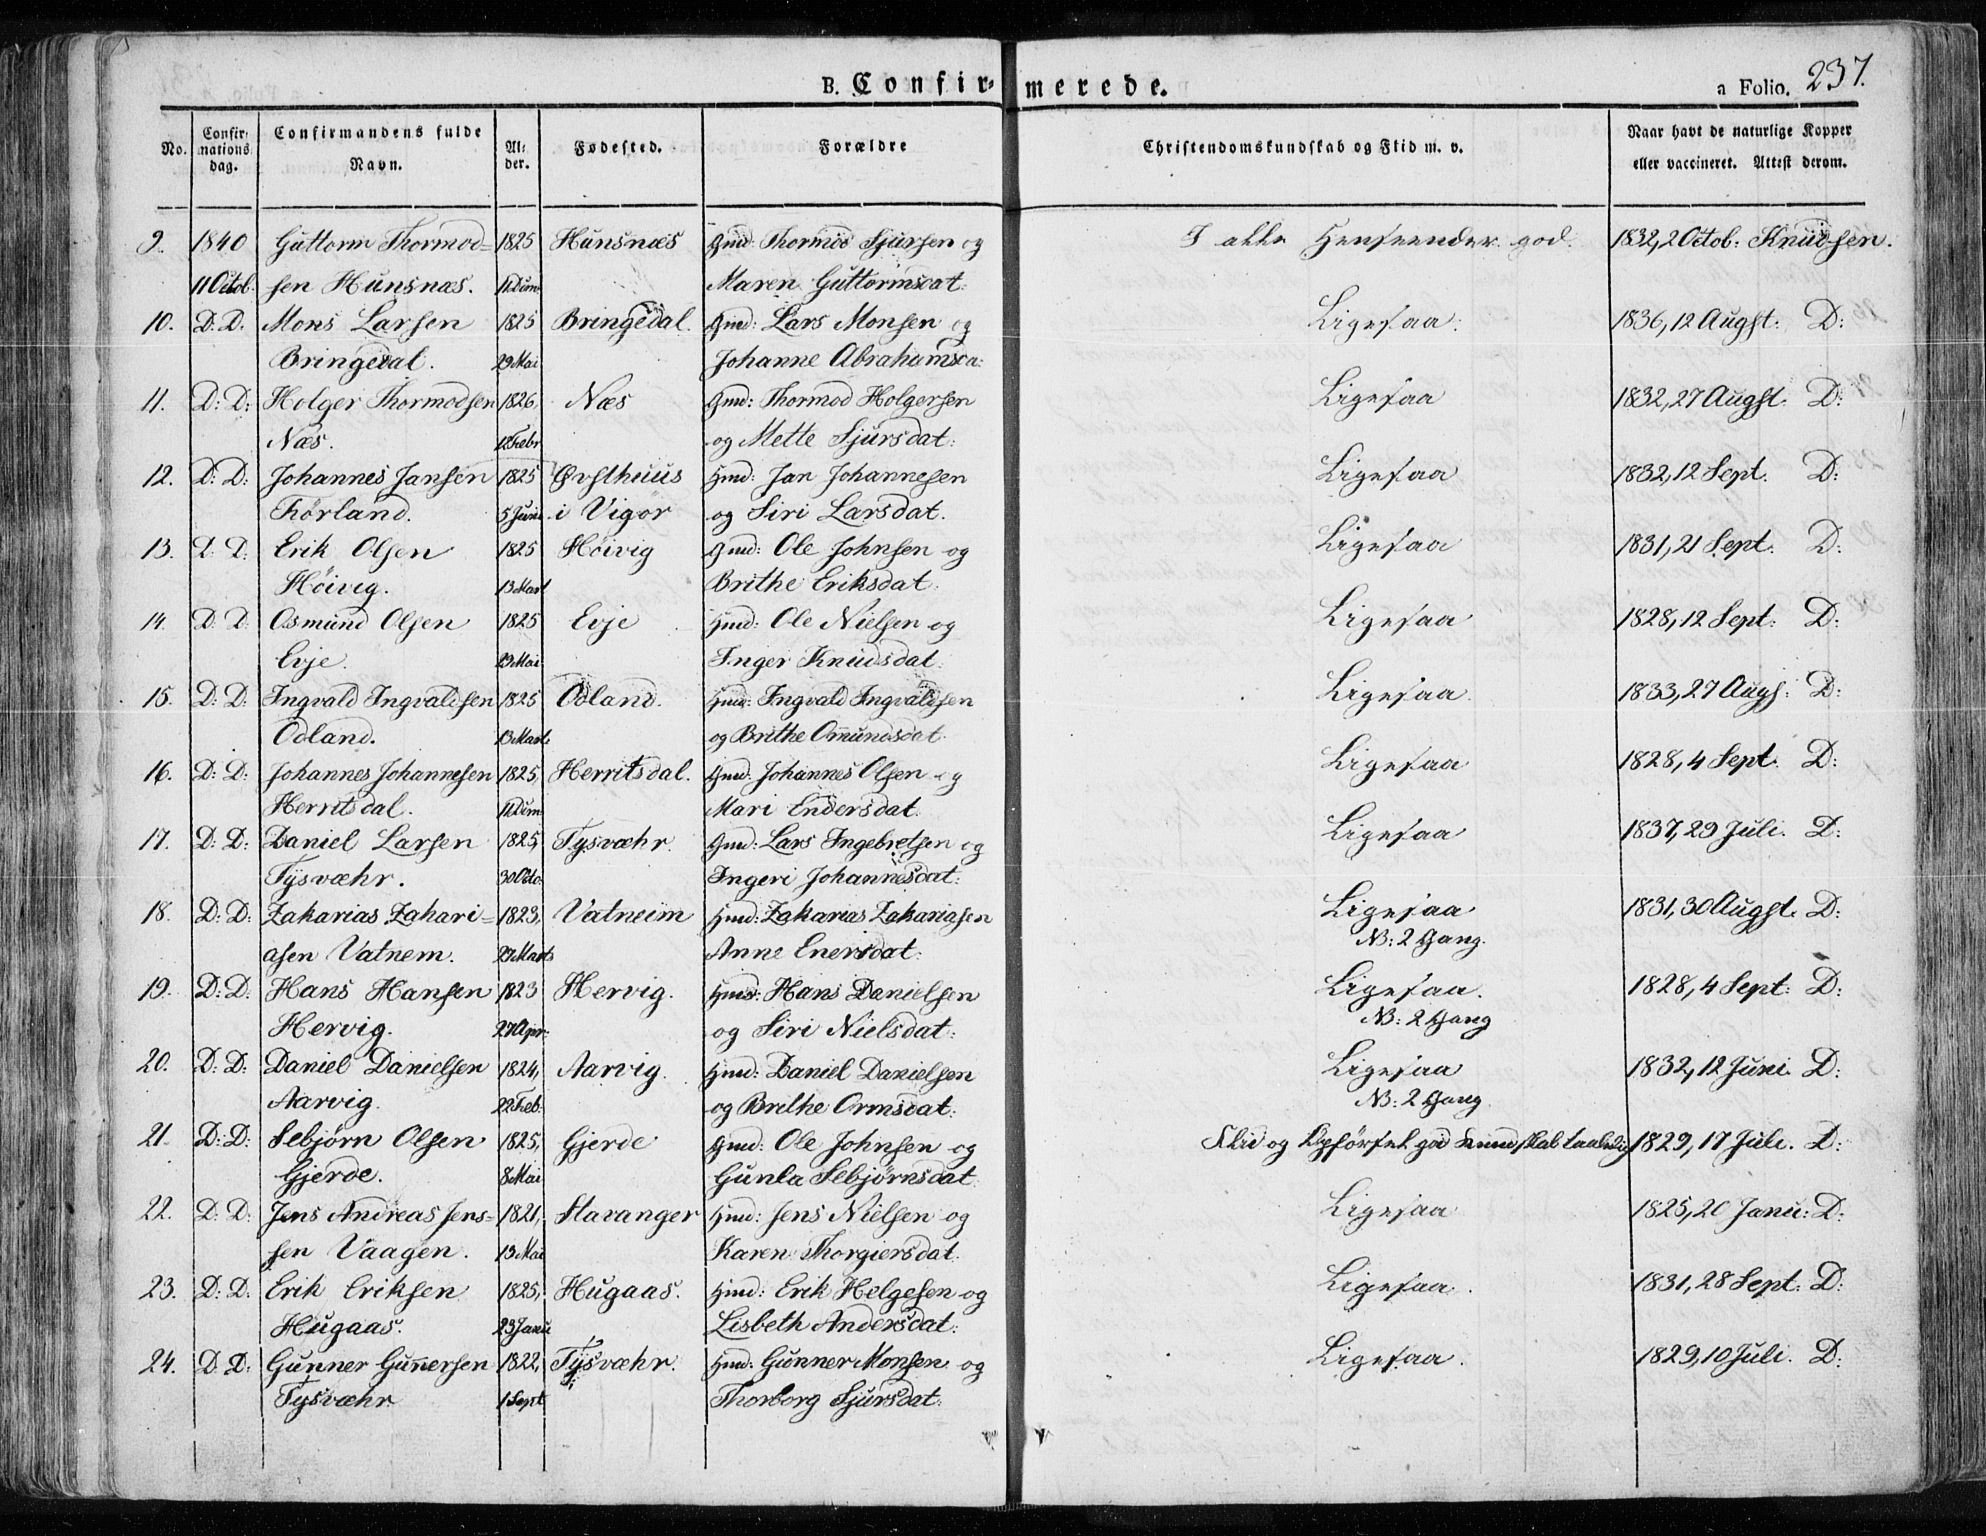 B. Confirmerede. a Folio. 237.
No. Confirmations dag. Confirmandens fulde Navn. Alder. Fødested. Forældre Christendomskundskab og Flid m. v. Naar havt de naturlige Kopper eller vaccineret. Attest derom.
9. 1840 Guttorm Thormod= 1825 Hunsnæs Gmd: Thormod Sjursen og I alle Henseender god. 1832, 2 Octob: Knudsen.
11 Octob. sen Hunsnæs. Maren Guttormsdat:
10. D: D. Mons Larsen 1825 Bringedal. Gmd: Lars Monsen og Ligesaa. 1836, 12 Augst: D:
Bringedal. 29 Mai Johanne Abrahamsda:
11. D: D: Holger Thormodsen 1826, Næs Gmd: Thormod Holgersen Ligesaa 1832, 27 Augst. D:
Næs. Febr og Mette Sjursdat:
12. D: D: Johannes Jansen 1825 Øvsthuus Hmd: Jan Johannesen Ligesaa 1832, 12 Sept. D:
Førland. 5 Juni i Vigør og Siri Larsdat.
13. D. D. Erik Olsen 1825 Høivig Gmd: Ole Johnsen og Ligesaa 1831, 21 Sept: D:
Høivig. 13 Mart Brithe Eriksdat:
14. D: D. Osmund Olsen 1825 Evje Hmd: Ole Nielsen og Ligesaa 1828, 12 Sept: D:
Evje. 29 Mai Inger Knudsdat:
15. D: D: Ingvald Ingvaldsen 1825 Odland. Hmd: Ingvald Ingvaldsen Ligesaa. 1833, 27 Augs: D:
Odland. 13 Mart. og Brithe Omundsdat
16. D: D: Johannes Johannesen 1825 Herritsdal. Gmd: Johannes Olsen og Ligesaa 1828, 4 Sept. D:
Herritsdal. Mari Endersdat.
17. D: D: Daniel Larsen 1825, Tysvæhr Gmd: Lars Ingebretsen og Ligesaa 1837, 29 Juli. D:
Tysvæhr. 30 Octo. Ingeri Johannesdat:
18. D: D: Zakarias Zahari= 1823, Vatneim Hmd: Zakarias Zakariasen Ligesaa 1831, 30 Augst. D:
asen Vatnem. 27 Marts Anne Enersdat: NB: 2 Gang.
19. D: D: Hans Hansen 1823 Hervig. Hmd: Hans Danielsen Ligesaa. 1828, 4 Sept: D:
Hervig. 27 Apr: og Siri Nielsdat: NB: 2 Gang
20. D: D: Daniel Danielsen 1824, Aarvig. Hmd: Daniel Danielsen Ligesaa 1832, 12 Juni. D:
Aarvig. 22 Feb: og Brithe Ormsdat: NB: 2 Gang.
21. D: D: Sebjørn Olsen 1825, Gjerde Gmd: Ole Johnsen og Flid og Opførsel god Kundskab taalelig 1829, 17 Juli. D:
Gjerde. 8 Mai Gunla Sebjørnsdat
22. D: D: Jens Andreas Jens= 1821, Stavanger Hmd: Jens Nielsen og Ligesaa 1825, 20 Janu: D:
sen Vaagen. 13 Mai Karen Thorgiersdat.
23. D: D: Erik Eriksen 1825, Hugaas. Hmd: Erik Helgesen og Ligesaa. 1831, 28 Sept: D:
Hugaas. 23 Janu Lisbeth Andersdat:
24. D. D. Gunner Gunnersen 1822, Tysvæhr. Hmd: Gunner Monsen og Ligesaa. 1829, 10 Juli. D:
Tysvæhr 1 Sept Thorborg Sjursdat: